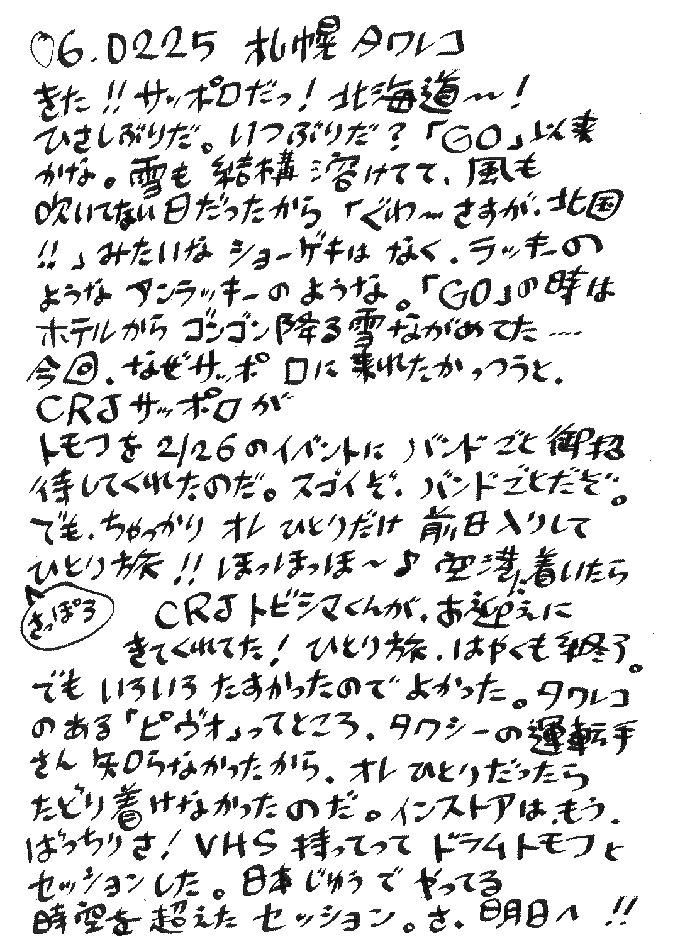 06.0225 札幌タワレコ
きた!!サッポロだっ!北海道〜!
ひさしぶりだ。いつぶりだ?「GO」以来
かな。雪も結構溶けてて、風も
吹いてない日だったから「ぐわ〜さすが、北国
!!」みたいなショーゲキはなく、ラッキーの
ようなアンラッキーのような。「GO」の時は
ホテルからゴンゴン降る雪ながめてた…
今回、なぜサッポロに来れたかっつうと、
CRJサッポロが
トモフを2/26のイベントにバンドごと御招
待してくれたのだ。スゴイぞ、バンドごとだぞ。
でも、ちゃっかりオレひとりだけ前日入りして
ひとり旅!!ほっほっほ〜♪空港着いたら
さっぽろ
CRJトビシマくんが、お迎えに
きてくれてた!ひとり旅、はやくも終了。
でもいろいろたすかったのでよかった。タワレコ
のある「ピヴォ」ってところ、タクシーの運転手
さん知らなかったから、オレひとりだったら
たどり着けなかったのだ。インストアは、もう、
ばっちりさ!VHS持ってってドラムトモフと
セッションした。日本じゅうでやってる
時空を超えたセッション。さ、明日へ!!